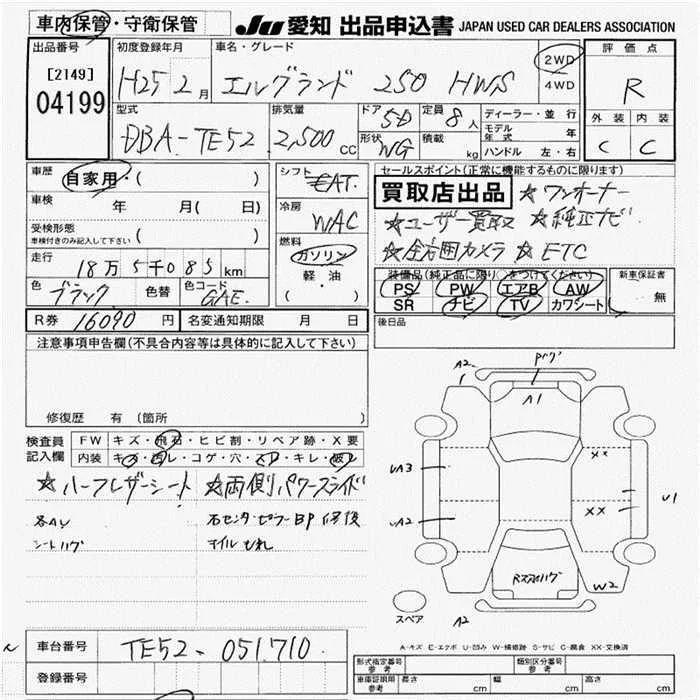 車内保管・守衛保管
JU 愛知 出品申込書 JAPAN USED CAR DEALERS ASSOCIATION
出品番号
[2149]
04199
初度登録年月
H25 2月
車名・グレード
エルグランド 250 HWS
2WD
4WD
評価点
R
外装 内装
C C
型式
DBA-TE52
排気量
2,500cc
ドア
5D
定員
8人
形状
WG
積載
kg
ディーラー・並行
モデル年式 年
ハンドル 左・右
車歴
自家用・( )
車検
年 月( 日)
受検形態
車検付きのみ記入して下さい
( )
走行
18万5千085km
色
ブラック
色替
色コード
GAE
シフト
FAT.
冷房
WAC
燃料
ガソリン
軽・油
( )
セールスポイント(正常に機能するものに限ります)
買取店出品 ☆ワンオーナー
☆ユーザー買取 ☆純正ナビ
☆全方囲カメラ ☆ETC
装備品(純正品に限り○をつけてください)
PS PW エアB AW
SR ナビ TV カワシート
新車保証書
無
後日品
R券 16090円
名変通知期限 月 日
注意事項申告欄(不具合内容等は具体的に記入して下さい)
修復歴 有 (箇所 )
検査員記入欄
FW キズ・飛石・ヒビ割・リペア跡・X要
内装 キズ・汚レ・コゲ・穴・スレ・キレ・破レ
☆ハーフレザーシート ☆両側パワースライド
各AU 右センターピラーBP修後
シートハゲ
A2
1
Pハゲ
A1
UA3
XX
UA2
XX
U1
W2
A2
スペア
A-キズ E-エクボ U-凹み W-補修跡 S-サビ C-腐食 XX-交換済
車台番号
TE52-051710
登録番号
形式指定番号
参考
類別区分番号
参考
車庫証明用
参考
長さ cm
幅 cm
高さ cm